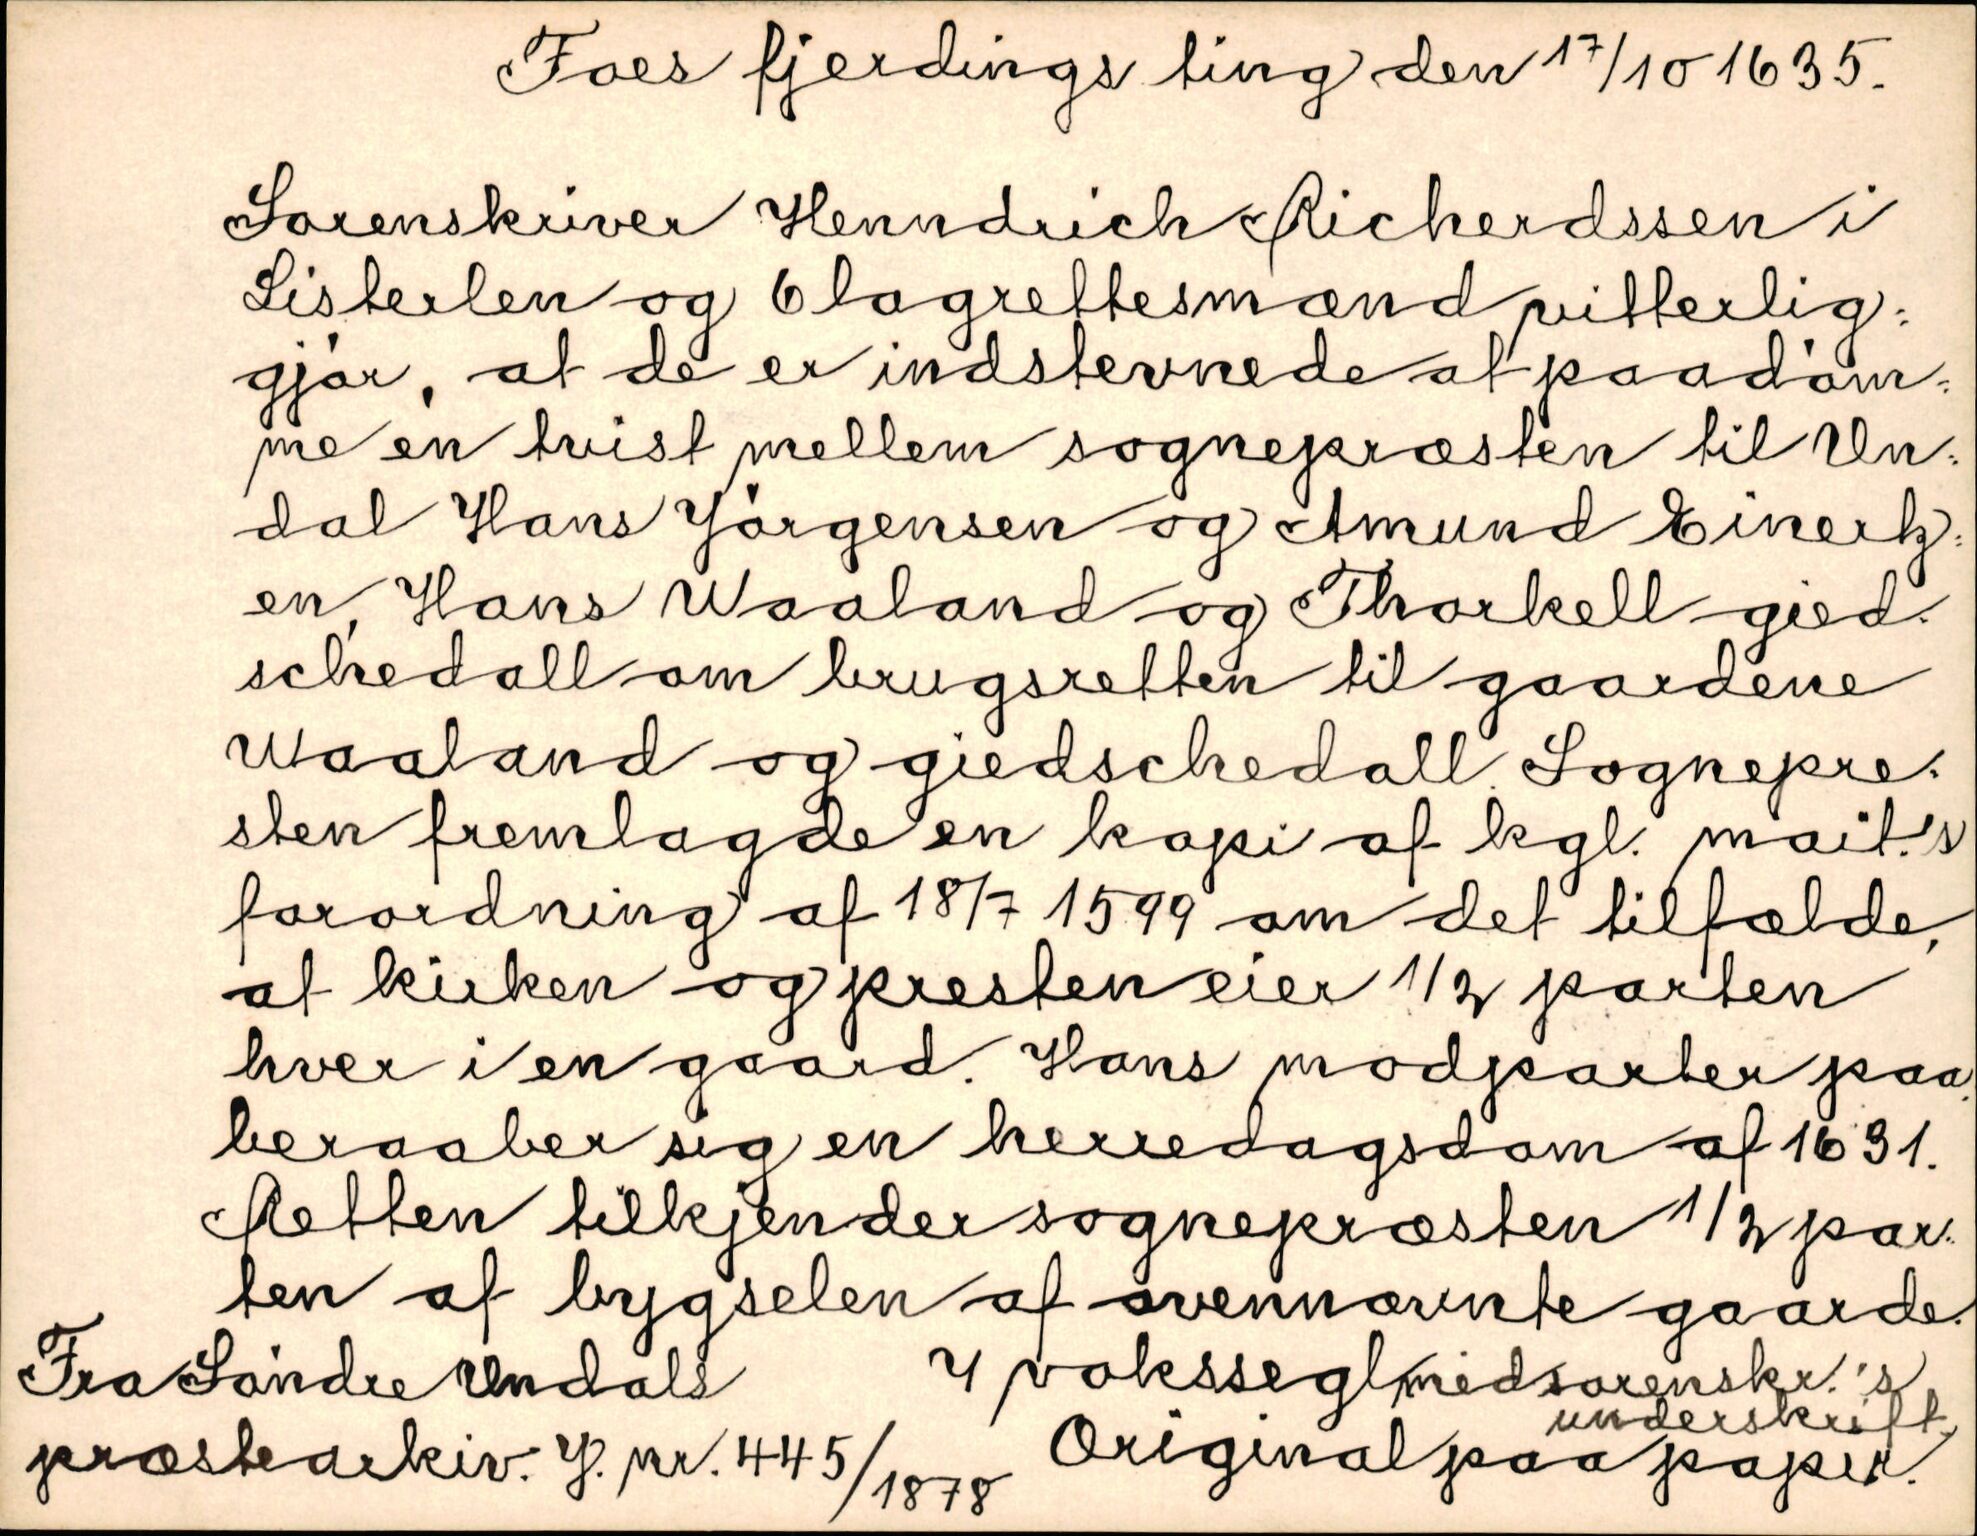 Foes fjerdings ting den 17/10 1635.
Sorenskriver Henndrich Richerdssen i
Listerlen og 6 lagrettesmænd vitterlig-
gjör, at de er indstevnede at paadöm-
me en tvist mellem sognepræsten til Un-
dal Hans Jörgensen og Amund Einertz-
en, Hans Waaland og Thorkell gied-
schedall om brugsretten til gaardene
Waaland og giedschedall. Sognepre-
sten fremlagde en kopi af kgl. mait.'s
forordning af 18/7 1599 om det tilfælde,
at kirken og presten eier 1/2 parten
hver i en gaard. Hans modparter paa-
beraaber sig en herredagsdom af 1631.
Retten tilkjender sognepræsten 1/2 par-
ten af bygselen af ovennævnte gaarde.
Fra Söndre Undals
præstearkiv. J. nr. 445/1878
4 vokssegl med sorenskr.'s
underskrift.
Original paa papir.